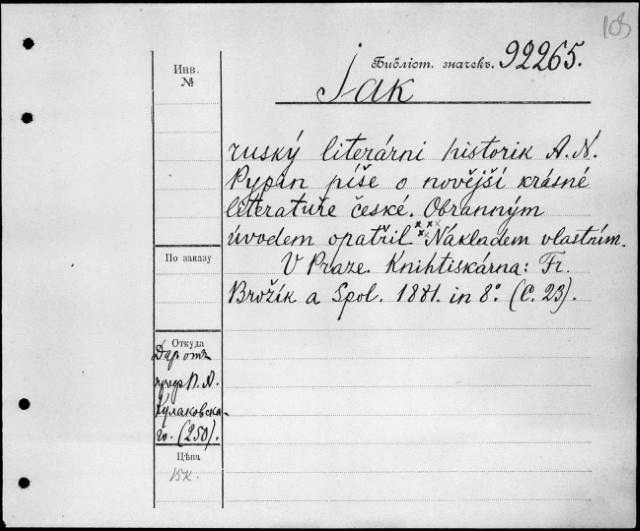 103
Инв.
№
Библіот. значекъ. 92265.
Jak
ruský literární historik A. N.
Pypin píše o novější krásné
literatuře české. Obranným
úvodem opatřil *** Nákladem vlastním.
V Praze. Knihtiskárna: Fr.
Brožík a Spol. 1881. in 8° (C. 23).
По заказу
Откуда
Даръ отъ
проф П. А.
Кулаковска-
го. (250).
Цѣна
15к.